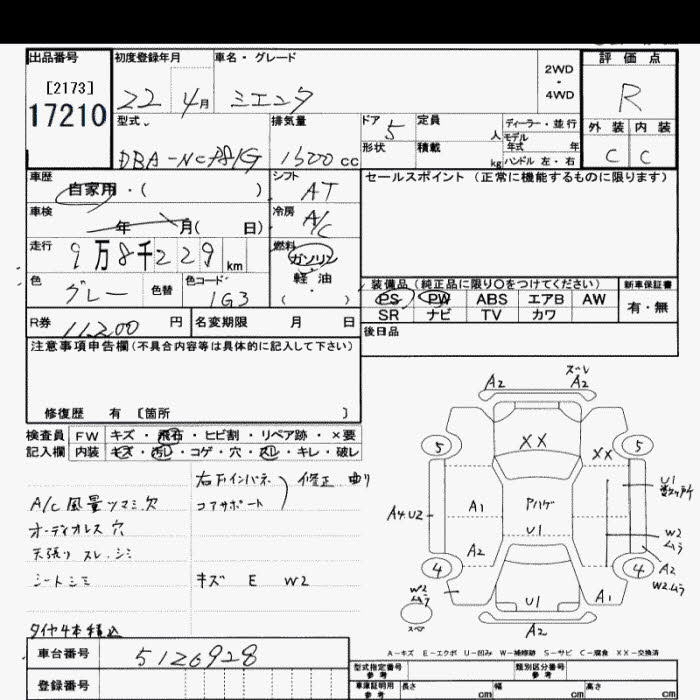 出品番号
[2173]
17210
初度登録年月
22 4月
車名・グレード
ミエンタ
2WD
・
4WD
評価点
R
外装 内装
C C
型式
DBA-NCP81G
排気量
1500cc
ドア 5
定員 人
ディーラー・並行
モデル年式 年
形状
積載 kg
ハンドル 左・右
車歴
自家用・( )
シフト
AT
セールスポイント (正常に機能するものに限ります)
車検
年 月( 日)
冷房
A/C
走行
9万8千229km
燃料
ガソリン
・
軽油
( )
色
グレー
色替
色コード
1G3
装備品(純正品に限り○をつけてください)
新車保証書
PS PW ABS エアB AW
有・無
SR ナビ TV カワ
R券 11,200円
名変期限 月 日
後日品
注意事項申告欄(不具合内容等は具体的に記入して下さい)
修復歴 有 [箇所 ]
検査員記入欄
FW キズ・飛石・ヒビ割・リペア跡・×要
内装 キズ・汚レ・コゲ・穴・スレ・キレ・破レ
右フインパネ
コアサポート
修正 曲り
A/C 風量ツマミ欠
オーディオレス 穴
天張り スレ.シミ
シートシミ
キズ E W2
タイヤ4本積込
A2 A2 スーレ
5 5
XX XX
A1 Pハゲ U1
A4.U2
A2
U1
数ヶ所
W2
ムラ
4 4
A2
W2.ムラ
W2
ムラ
スペア
U1 A1
A2
A-キズ E-エクボ U-凹み W-補修跡 S-サビ C-腐食 XX-交換済
車台番号 5126928
登録番号
型式指定番号
参考
類別区分番号
参考
車庫証明用
参考
長さ cm 幅 cm 高さ cm